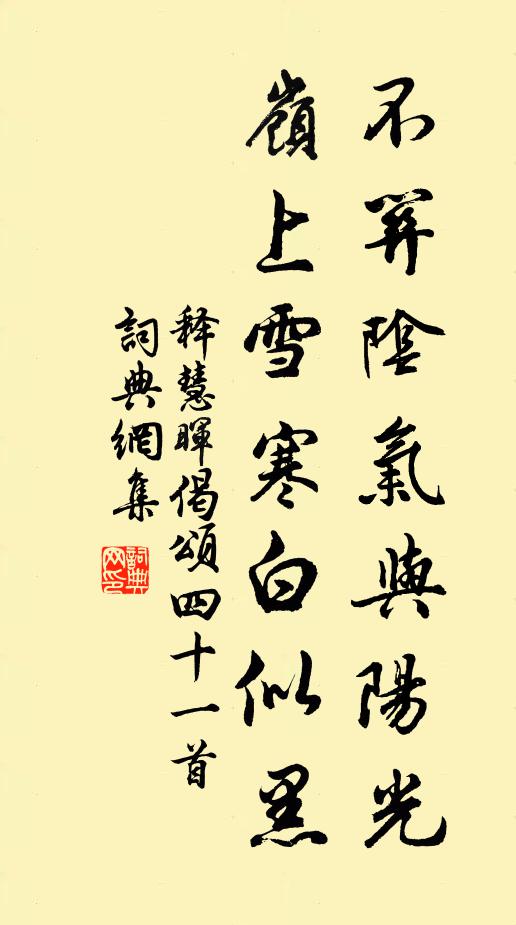 不筭陰氣與陽光
嶺上雪寒白似黑
释慧暉偈頌四十一首
詞典網集
詞典网印